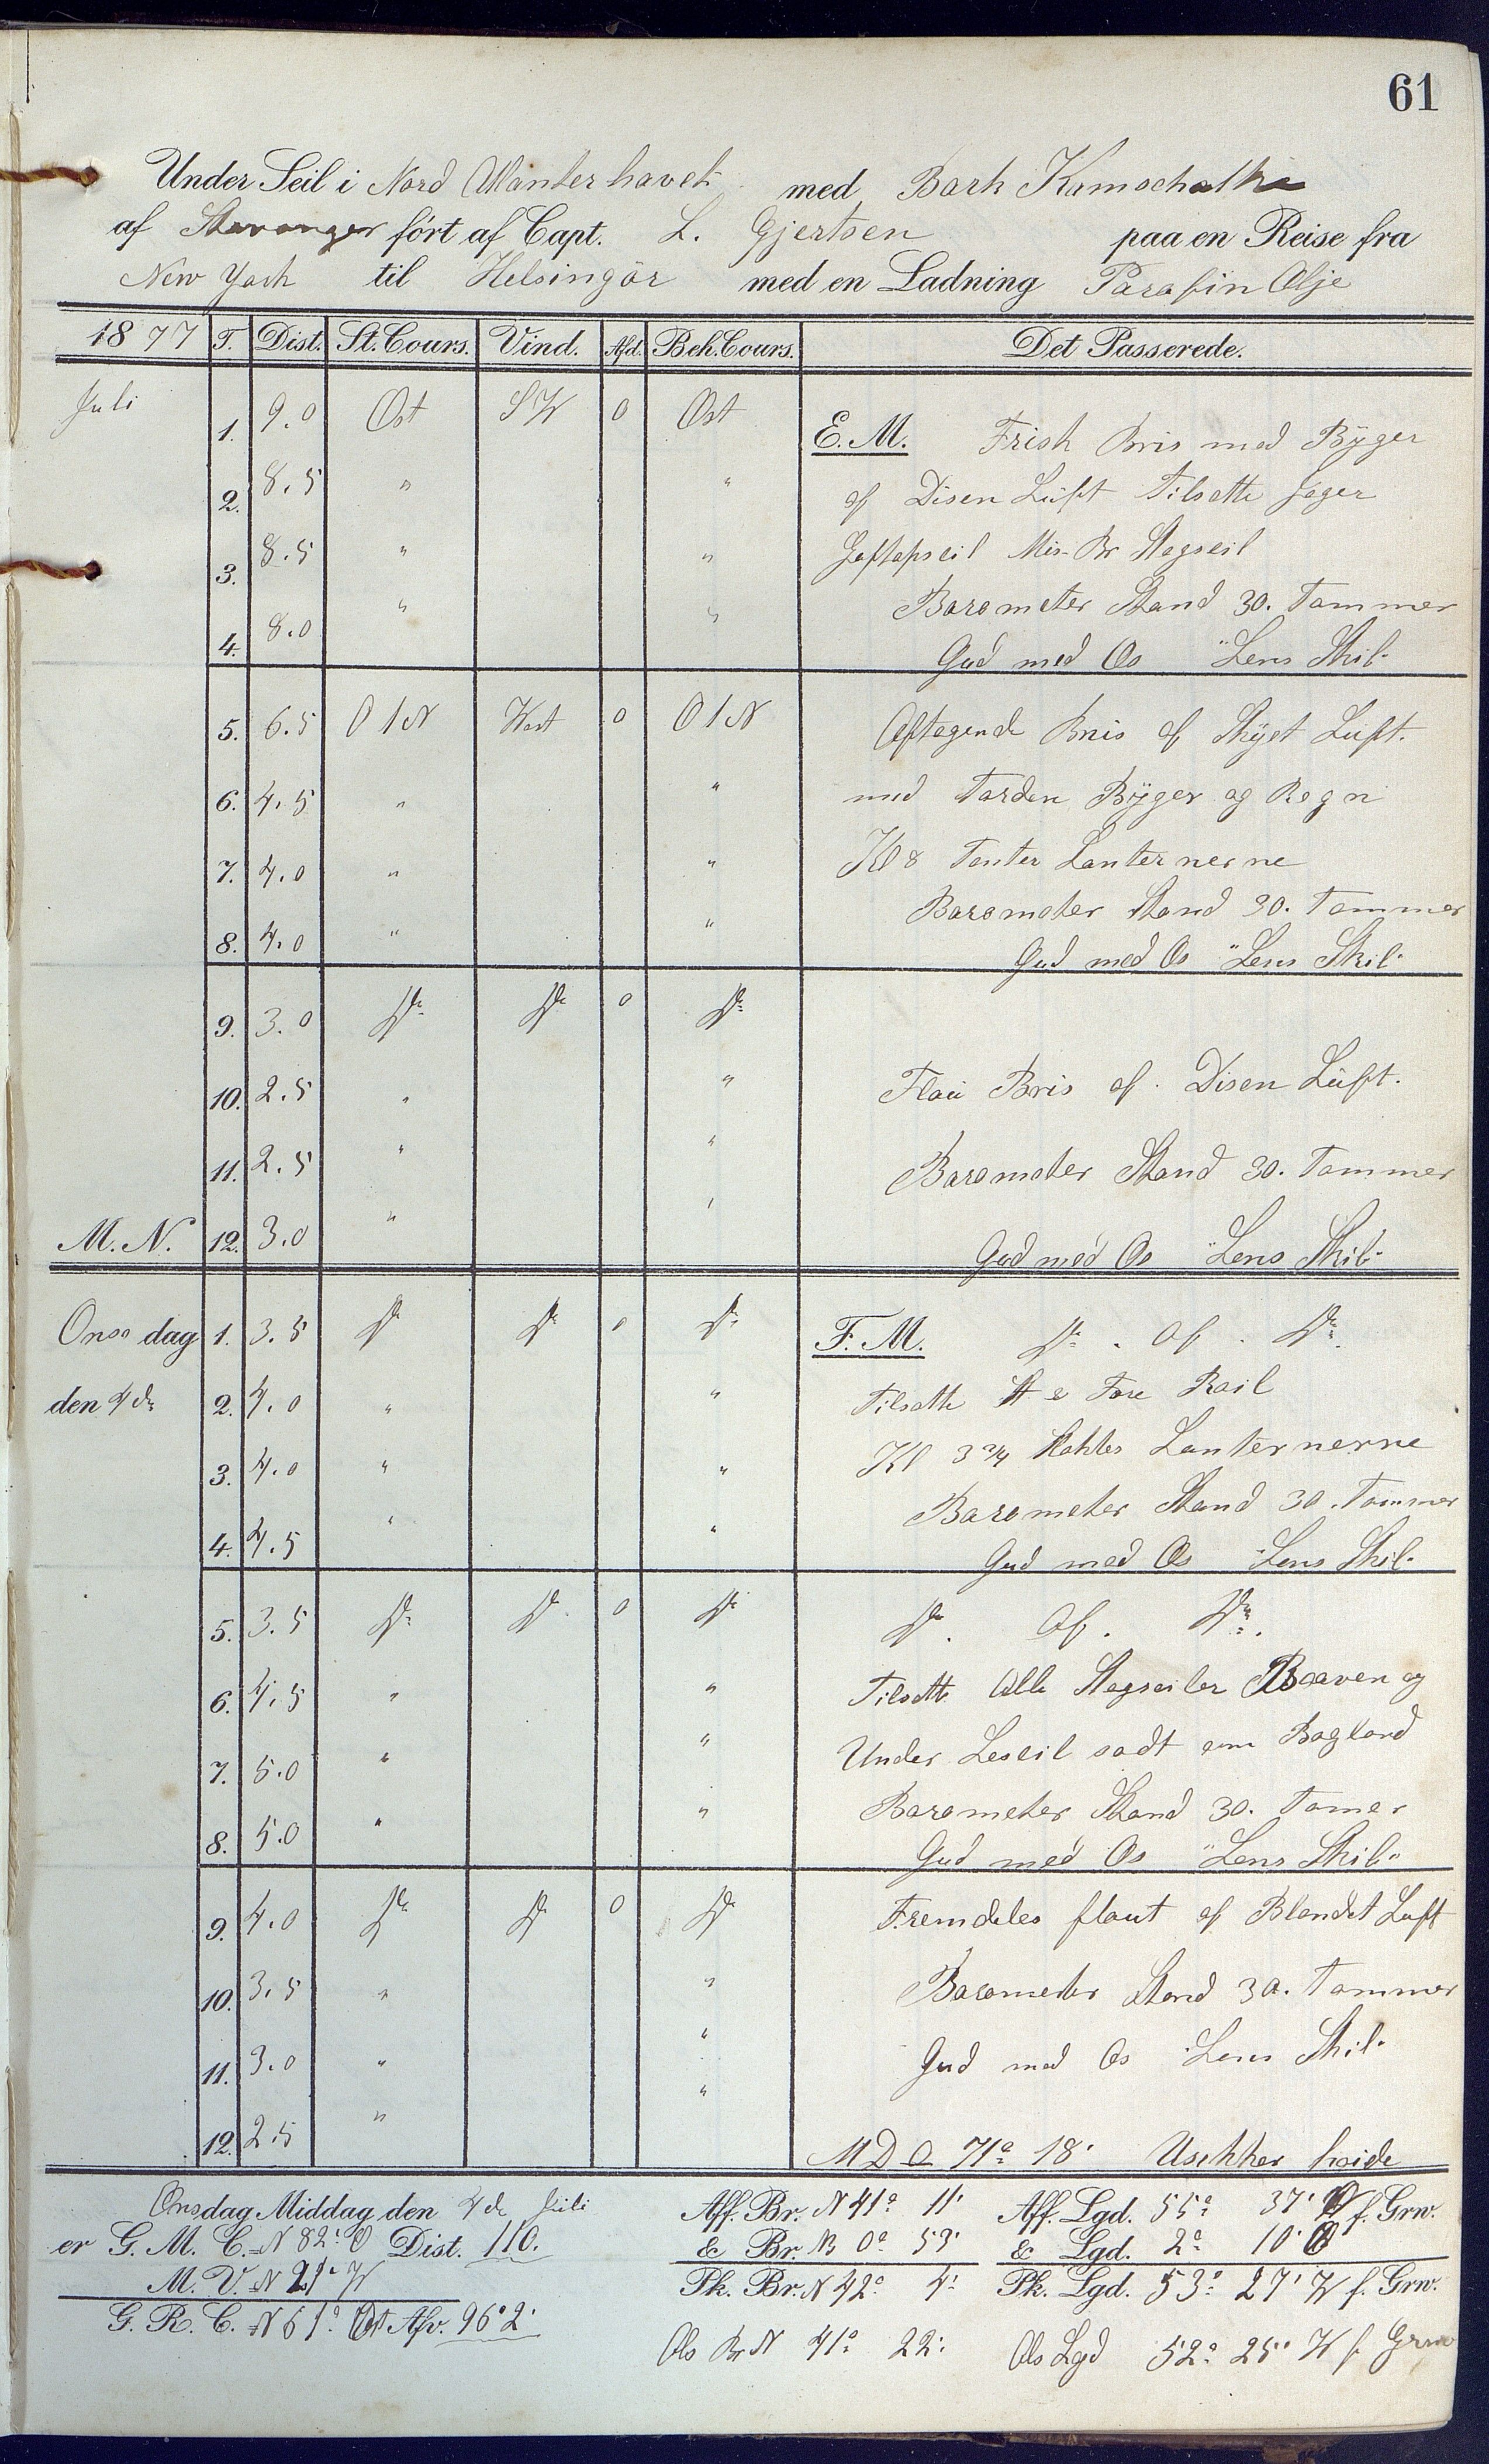 61
Under Seil i Nord Atlanterhavet med Bark Kamschatka
af Stavanger fört af Capt. L. Gjertsen paa en Reise fra
New York til Helsingör med en Ladning Parafin Olje
1877 T. Dist. St. Cours. Vind. Afd. Beh. Cours. Det Passerede.
Juli 1. 9.0 Ost SW 0 Ost E. M. Frisk Bris med Byger
2. 8.5 " " af Disen Luft Tilsatte Jager
3. 8.5 " " Gaftopseil Mes. Br Stagseil
4. 8.0 " " Barometer Stand 30. Tommer
Gud med Os "Lens Skib"
5. 6.5 O 1 N West 0 O 1 N Aftagende Bris af Skyet Luft.
6. 4.5 " " med Torden Byger og Regn
7. 4.0 " " Kl 8 Tenter Lanternerne
8. 4.0 " " Barometer Stand 30. Tommer
Gud med Os "Lens Skib"
9. 3.0 Do Do 0 Do
10. 2.5 " " Flau Bris af Disen Luft.
11. 2.5 " " Barometer Stand 30. Tommer
M. N. 12. 3.0 " " Gud med Os "Lens Skib"
Onsdag 1. 3.5 Do Do 0 Do F. M. Do. Af. Do.
den 4de 2. 4.0 " " Tilsatte St & Fore Rail
3. 4.0 " " Kl 3 3/4 Slukter Lanternerne
4. 4.5 " " Barometer Stand 30. Tommer
Gud med Os "Lens Skib"
5. 3.5 Do Do 0 Do Do. Af. Do.
6. 4.5 " " Tilsatte Alle Stagseiler Boven og
7. 5.0 " " Under Leseil sadt om Bagbord
8. 5.0 " " Barometer Stand 30. Tomer
Gud med Os "Lens Skib"
9. 4.0 Do Do 0 Do Fremdeles flaut af Blandet Luft
10. 3.5 " " Barometer Stand 30. Tommer
11. 3.0 " " Gud med Os "Lens Skib"
12. 2.5 " " 71° 18' Usikker hoide
Onsdag Middag den 4de Juli Aff. Br. N 41° 11' Aff. Lgd. 55° 37' W f. Grw.
er G. M. C. N 82° O Dist. 110. & Br. N 0° 53' & Lgd. 2° 10' O
M. V. N 21° W Pk. Br. N 42° 4' Pk. Lgd. 53° 27' W f. Grw.
G. R. C. N 61° Ost Afv. 96° 2' Obs Br N 41° 22' Obs Lgd 52° 25' W f Grw